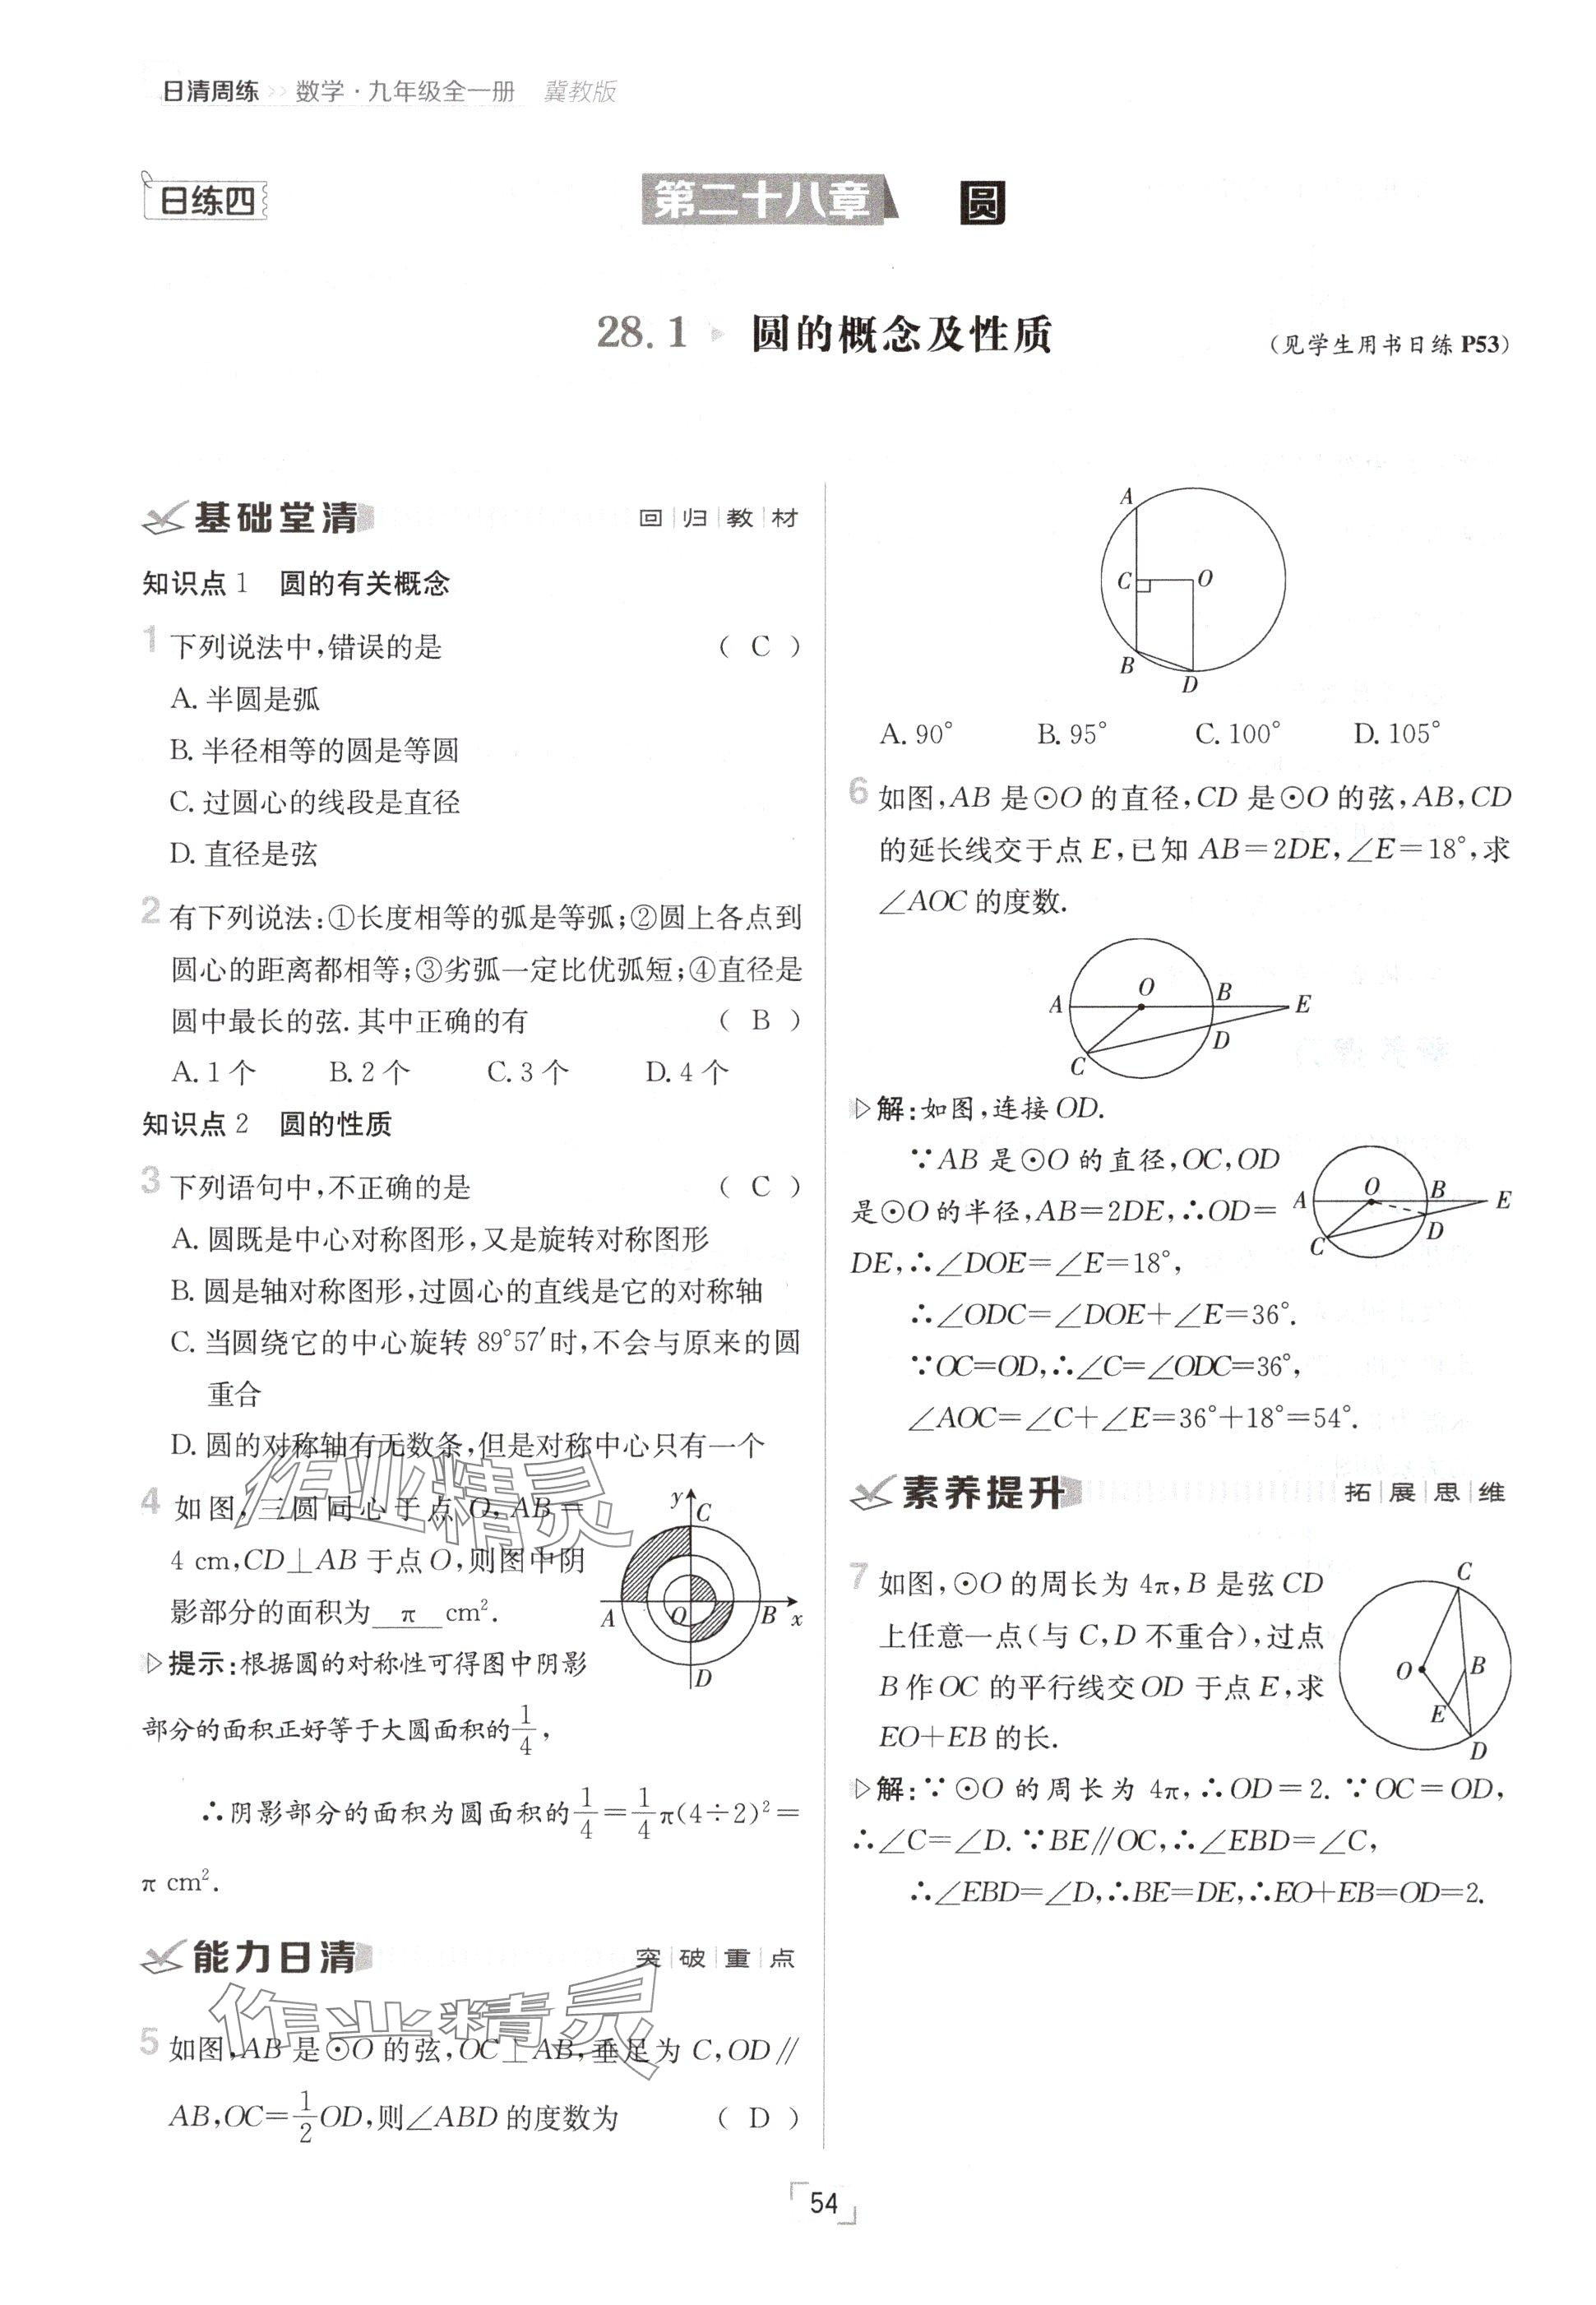 日清周练 >> 数学·九年级全一册 冀教版
日练四
第二十八章 圆
28.1 圆的概念及性质
(见学生用书日练P53)
基础堂清 回归教材
知识点1 圆的有关概念
1 下列说法中,错误的是 ( C )
A. 半圆是弧
B. 半径相等的圆是等圆
C. 过圆心的线段是直径
D. 直径是弦
2 有下列说法:①长度相等的弧是等弧;②圆上各点到
圆心的距离都相等;③劣弧一定比优弧短;④直径是
圆中最长的弦. 其中正确的有 ( B )
A. 1个 B. 2个 C. 3个 D. 4个
知识点2 圆的性质
3 下列语句中,不正确的是 ( C )
A. 圆既是中心对称图形,又是旋转对称图形
B. 圆是轴对称图形,过圆心的直线是它的对称轴
C. 当圆绕它的中心旋转89°57′时,不会与原来的圆
重合
D. 圆的对称轴有无数条,但是对称中心只有一个
4 如图,三圆同心于点O,AB=
4 cm,CD⊥AB于点O,则图中阴
影部分的面积为 π cm².
y C
A O B x
D
▷提示:根据圆的对称性可得图中阴影
部分的面积正好等于大圆面积的1/4,
∴阴影部分的面积为圆面积的1/4=1/4π(4÷2)²=
π cm².
能力日清 突破重点
5 如图,AB是⊙O的弦,OC⊥AB,垂足为C,OD∥
AB,OC=1/2OD,则∠ABD的度数为 ( D )
A
C O
B D
A. 90° B. 95° C. 100° D. 105°
6 如图,AB是⊙O的直径,CD是⊙O的弦,AB,CD
的延长线交于点E,已知AB=2DE,∠E=18°,求
∠AOC的度数.
A O B E
C D
▷解:如图,连接OD.
∵AB是⊙O的直径,OC,OD
是⊙O的半径,AB=2DE,∴OD=
DE,∴∠DOE=∠E=18°,
A O B E
C D
∴∠ODC=∠DOE+∠E=36°.
∵OC=OD,∴∠C=∠ODC=36°,
∠AOC=∠C+∠E=36°+18°=54°.
素养提升 拓展思维
7 如图,⊙O的周长为4π,B是弦CD
上任意一点(与C,D不重合),过点
B作OC的平行线交OD于点E,求
EO+EB的长.
C
O B
E
D
▷解:∵⊙O的周长为4π,∴OD=2. ∵OC=OD,
∴∠C=∠D. ∵BE∥OC,∴∠EBD=∠C,
∴∠EBD=∠D,∴BE=DE,∴EO+EB=OD=2.
作业精灵
作业精灵
54